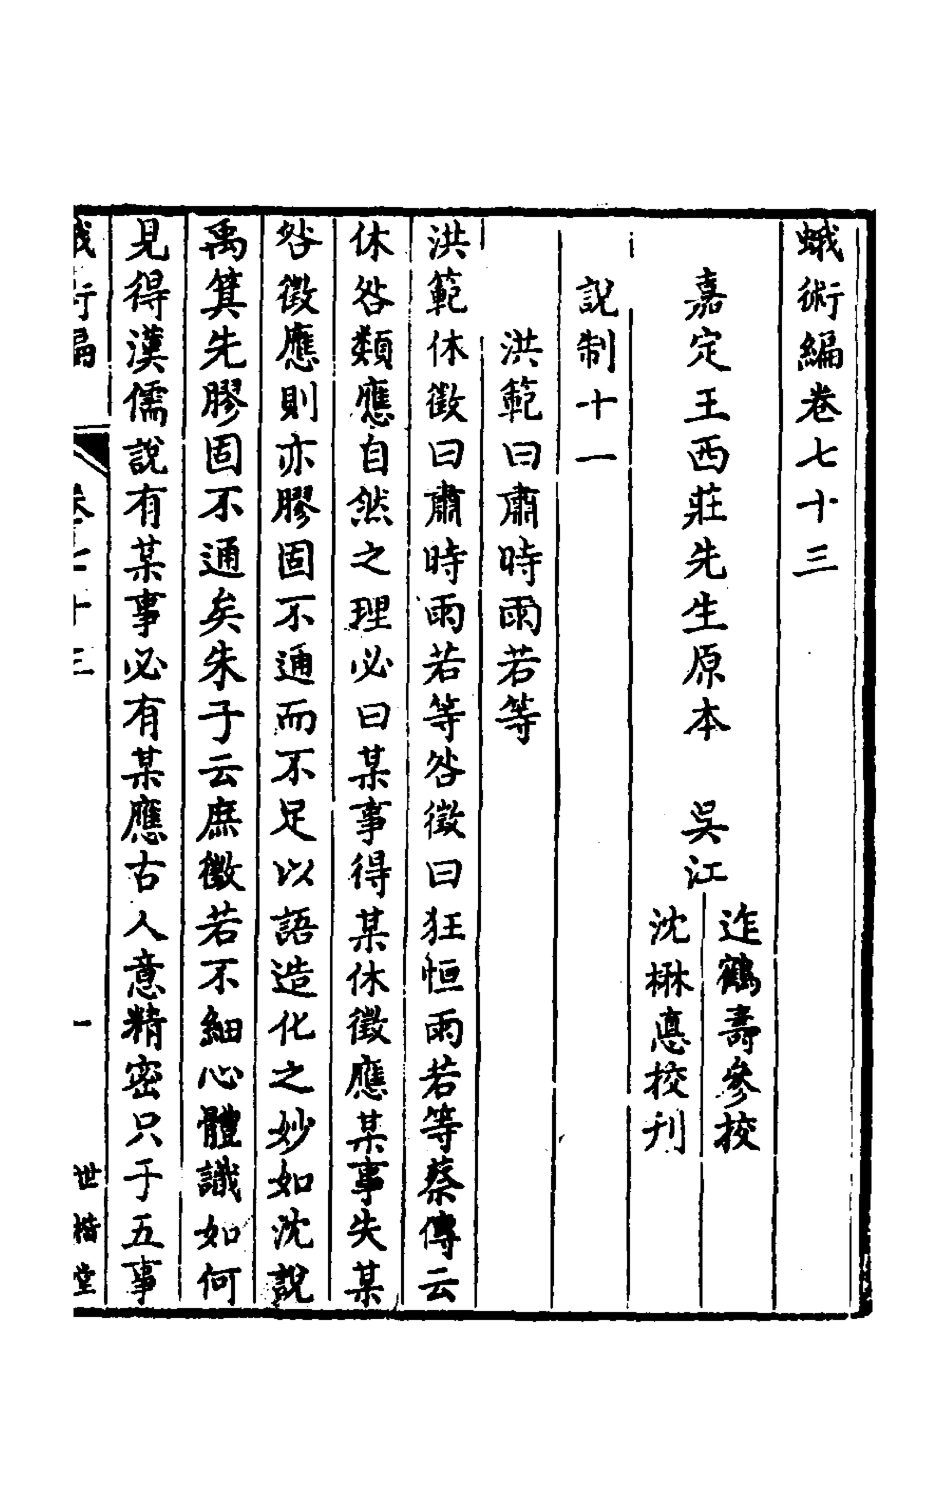 蛾術編卷七十三
嘉定王西莊先生原本　吳江
迮鶴壽參校
沈楙悳校刊
說制十一
洪範曰肅時雨若等
洪範休徵曰肅時雨若等咎徵曰狂恒雨若等蔡傳云
休咎類應自然之理必曰某事得某休徵應某事失某
咎徵應則亦膠固不通而不足以語造化之妙如沈說
禹箕先膠固不通矣朱子云庶徵若不細心體識如何
見得漢儒說有某事必有某應古人意精密只于五事
蛾術編　卷七十三　一　世楷堂